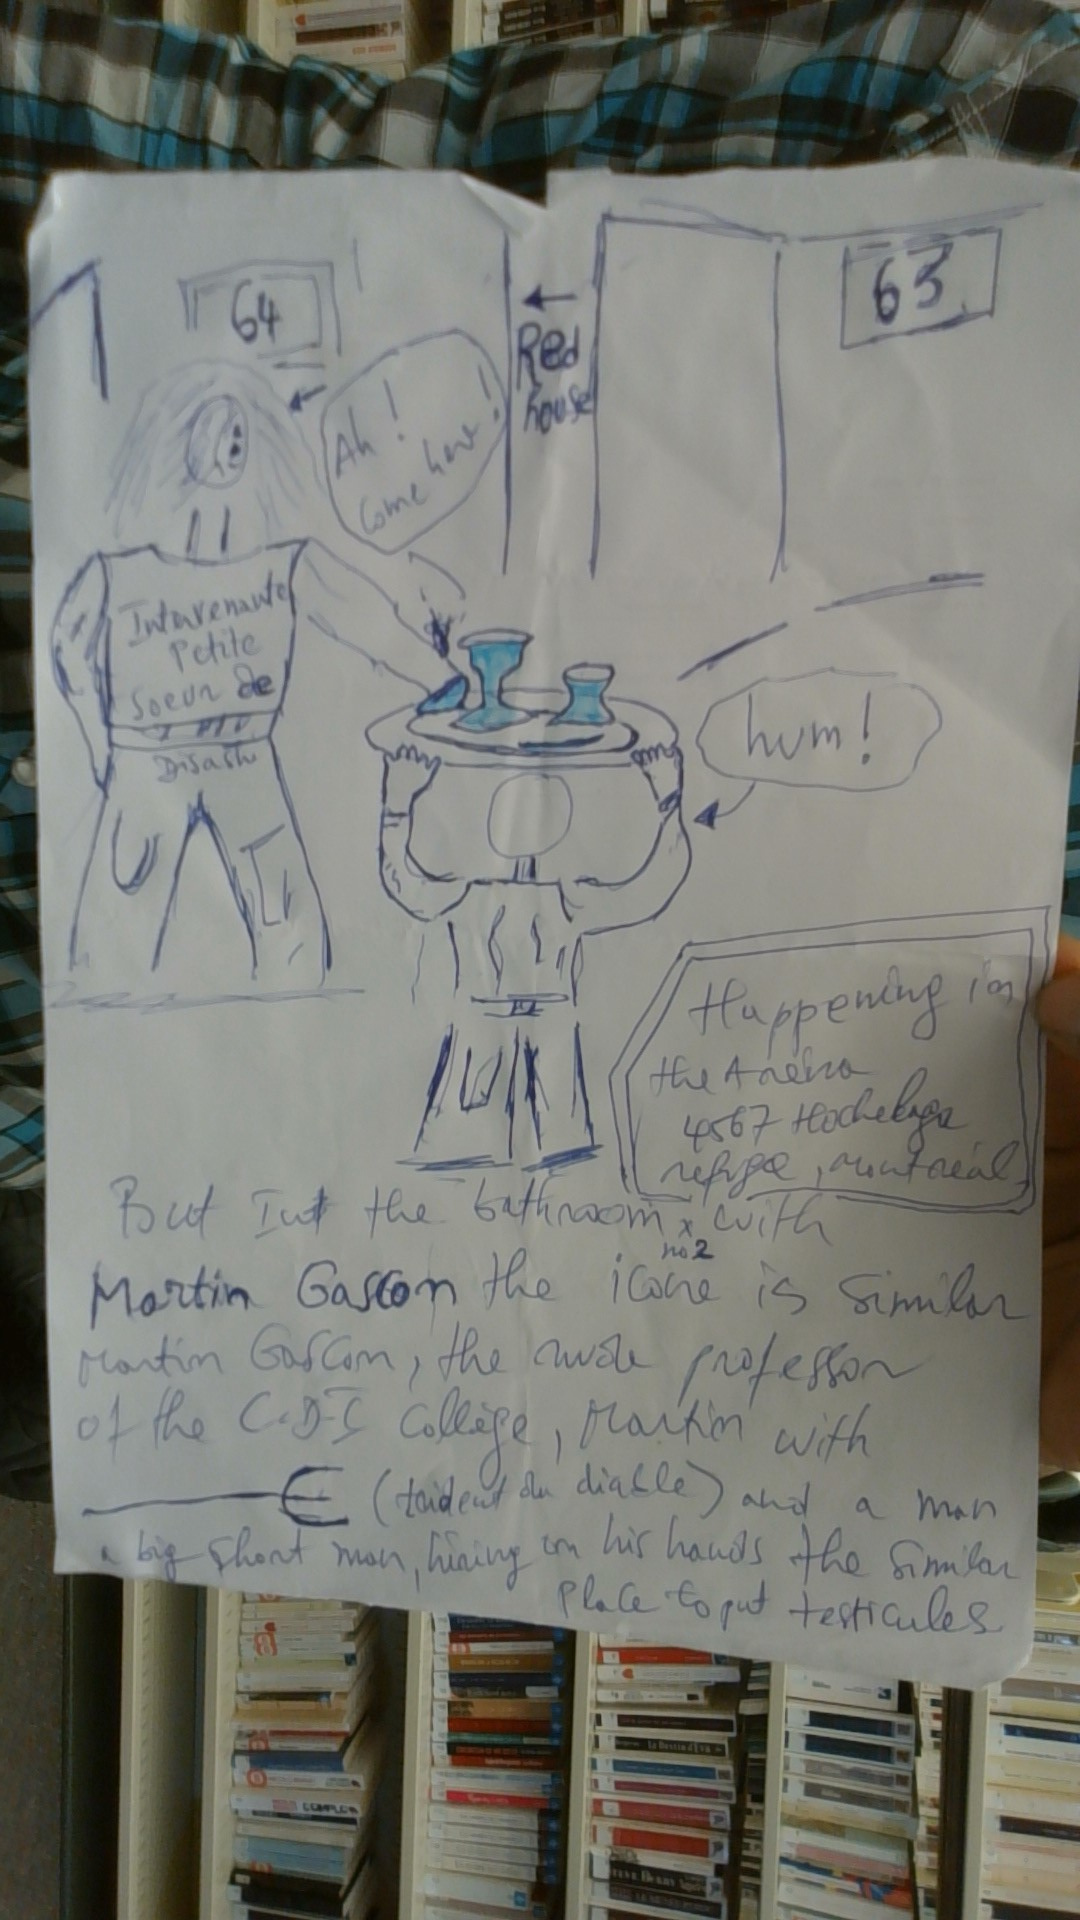 64
63
Red
house
Ah !
Come here !
Intervenante
Petite
Soeur de
Disastu
hum !
Happening in
the Arena
4567 Hochelaga
refuge, montréal
But In the bathroom x with
no 2
Martin Gascon the icone is similar
Martin Gascon, the professor
of the C-D-I College, Martin with
(trident du diable) and a man
a big short man, on his hands the similar
place to put testicules